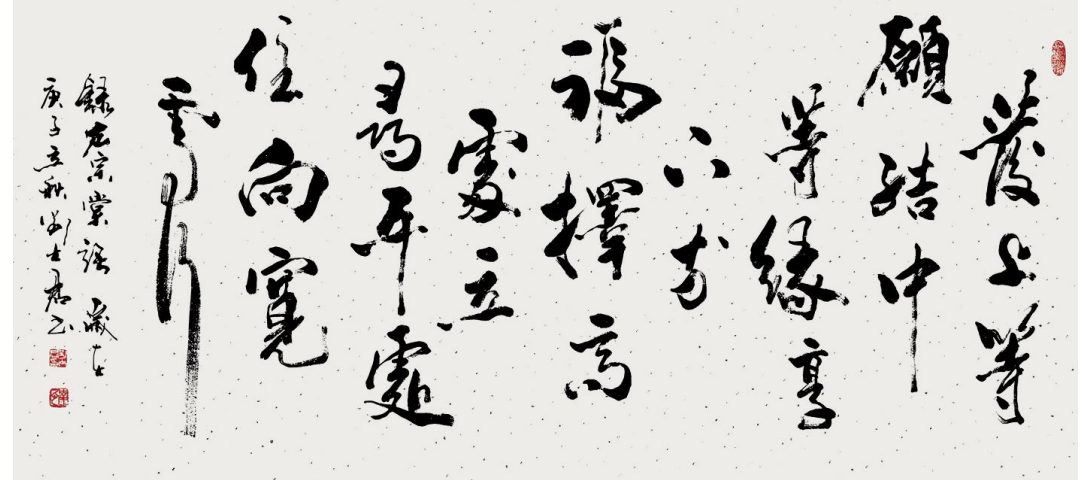 發上等
願結中
等緣享
下等
福擇高
處立
尋平處
住向寬
處行
錄左宗棠語 歲在
庚子立秋劉士